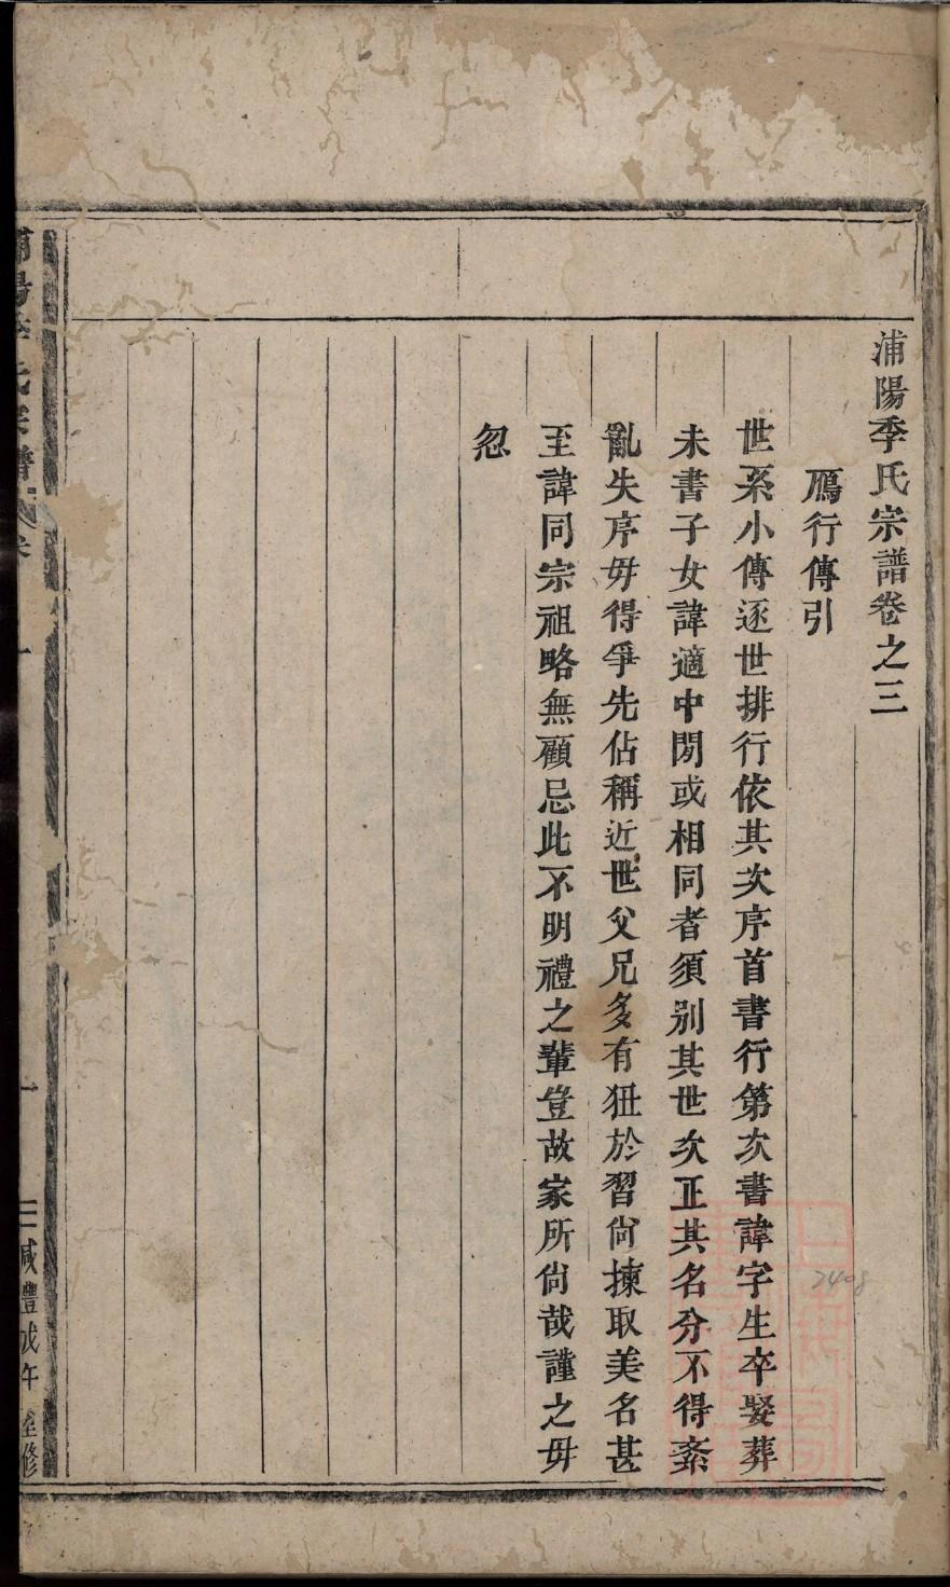 浦陽季氏宗譜卷之三
鴈行傳引
世系小傳逐世排行依其次序首書行第次書諱字生卒娶葬
未書子女諱適中閒或相同者須別其世次正其名分不得紊
亂失序毋得爭先佔稱近世父兄多有狃於習尙揀取美名甚
至諱同宗祖略無顧忌此不明禮之輩豈故家所尙哉謹之毋
忽
浦陽季氏宗譜
一
咸豐戊午 修
2408